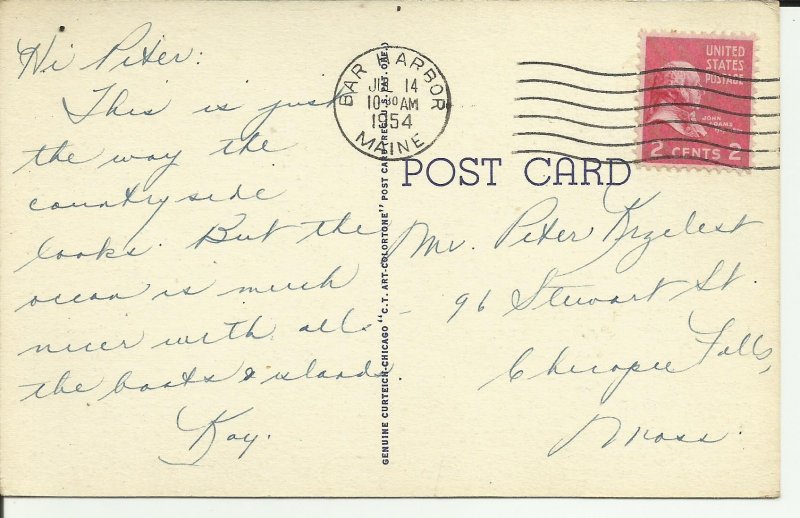 Hi Peter:
This is just
the way the
countryside
looks. But the
ocean is much
nicer with all
the boats & islands.
Kay.
GENUINE CURTEICH-CHICAGO "C.T. ART-COLORTONE" POST CARD (REG. U.S. PAT. OFF.)
BAR HARBOR
JUL 14
10 30 AM
1954
MAINE
UNITED
STATES
POSTAGE
JOHN
ADAMS
2 CENTS 2
POST CARD
Mr. Peter
96 Stewart St.
Chicopee Falls,
Mass.